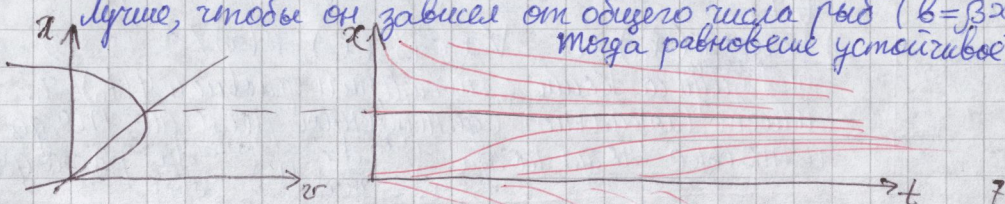 Лучше, чтобы он зависел от общего числа рыб (в=βx
x x тогда равновесие устойчивое
v t